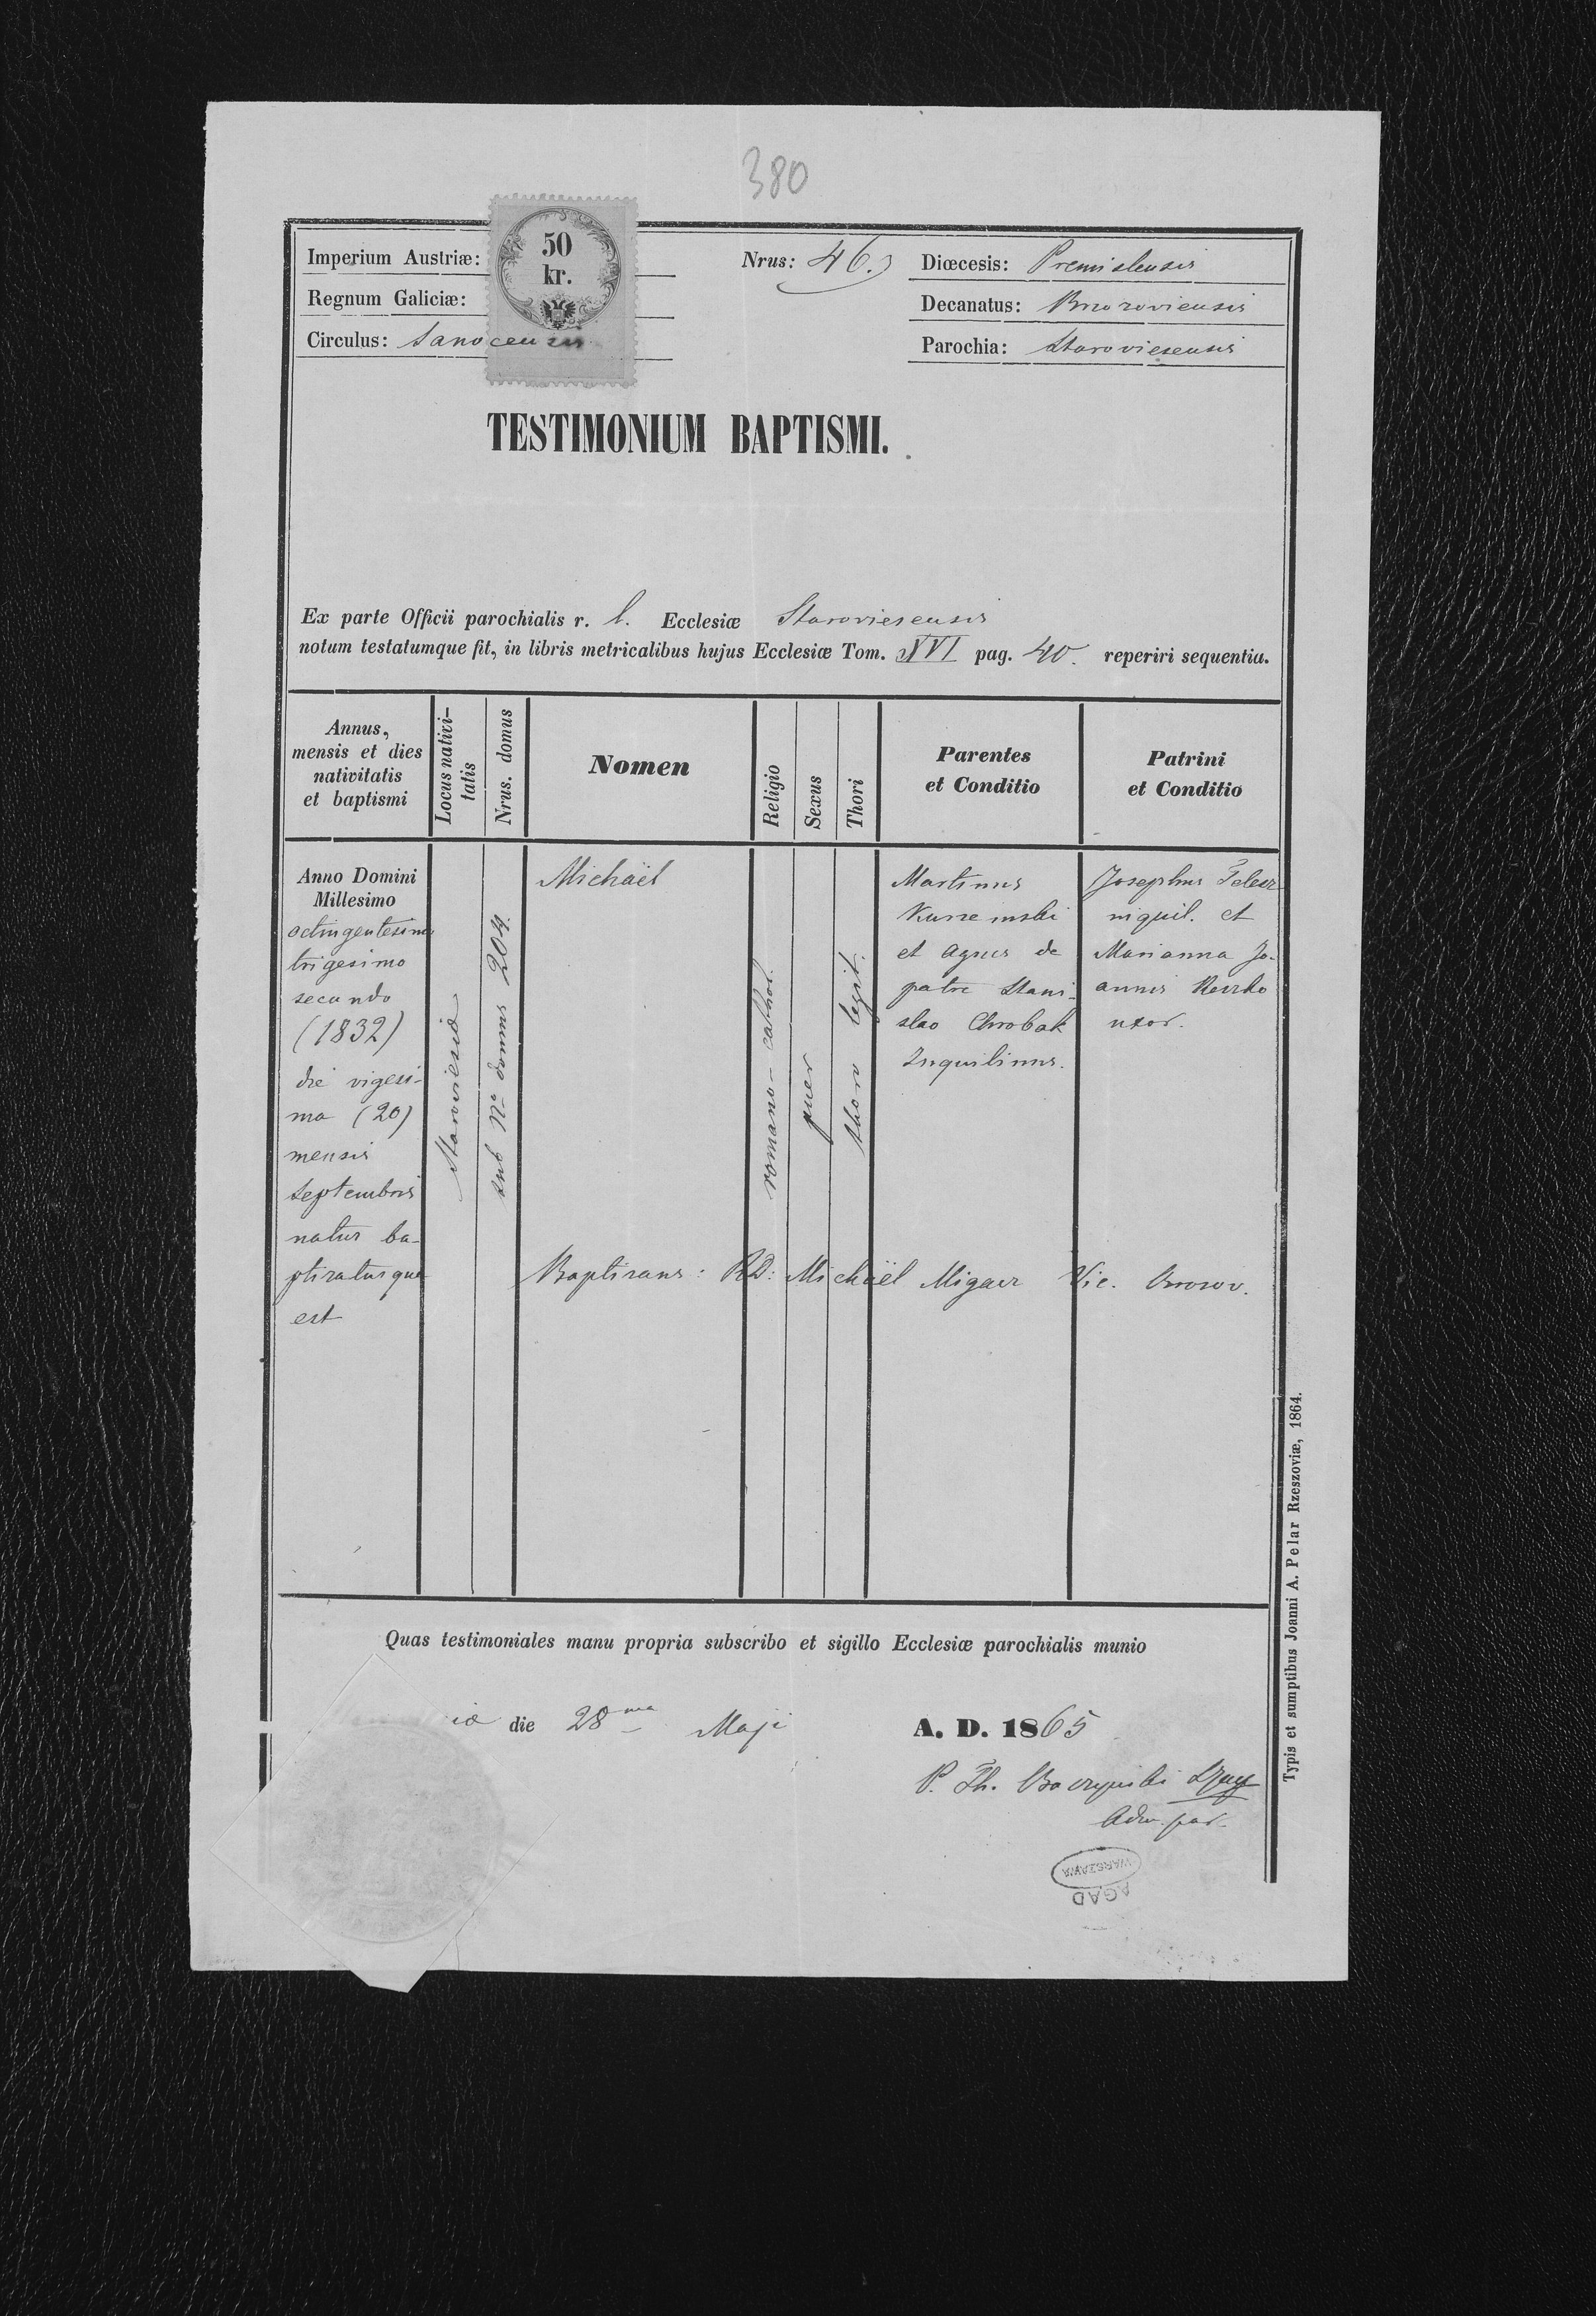 380
50
kr.
Imperium Austriæ:
Regnum Galiciæ:
Circulus: Sanocensis
Nrus: 46.
Diœcesis: Premisliensis
Decanatus: Brzozoviensis
Parochia: Staroviesensis
TESTIMONIUM BAPTISMI.
Ex parte Officii parochialis r. l. Ecclesiæ Staroviesensis
notum testatumque fit, in libris metricalibus hujus Ecclesiæ Tom. XVI pag. 40. reperiri sequentia.
Annus,
mensis et dies
nativitatis
et baptismi
Locus nativi-
tatis
Nrus. domus
Nomen
Religio
Sexus
Thori
Parentes
et Conditio
Patrini
et Conditio
Anno Domini
Millesimo
octingentesimo
trigesimo
secundo
(1832)
die vigesi-
ma (20)
mensis
Septembris
natus ba-
ptizatusque
est
Staroviesiæ
sub No domus 204.
Michaël
romano-cathol.
puer
thoro legit.
Martinus
et Agnes de
patre Stani-
slao Chrobak
Inquilinus.
Josephus
inquil. et
Marianna Jo-
annis
uxor.
Baptizans: RD: Michaël Vic. Brzozov.
Quas testimoniales manu propria subscribo et sigillo Ecclesiæ parochialis munio
iæ die 28va Maji A. D. 1865
P. Th.
Adm. par.
WARSZAWA
AGAD
Typis et sumptibus Joanni A. Pelar Rzeszoviæ, 1864.